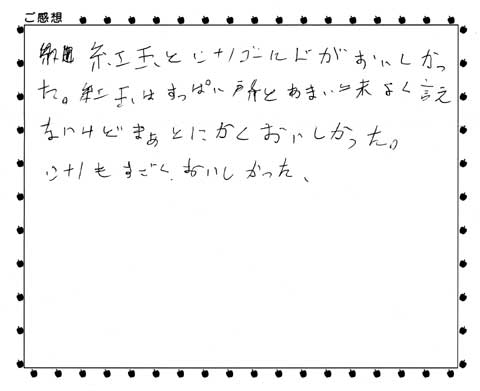 ご感想
紅玉とシナノゴールドがおいしかっ
た。紅玉はすっぱい所とあまい
なく言え
ないけどまぁとにかくおいしかった。
シナノもすごくおいしかった、